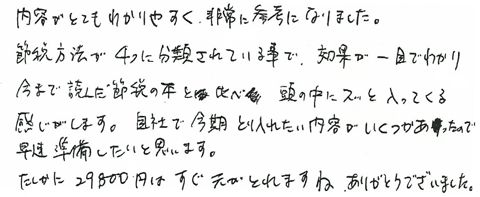 内容がとてもわかりやすく、非常に参考になりました。
節税方法が4つに分類されている事で、効果が一目でわかり
今まで読んだ節税の本と比べ 頭の中にスッと入ってくる
感じがします。自社で今期とり入れたい内容がいくつかあったので
早速準備したいと思います。
たしかに29800円はすぐ元がとれますね。ありがとうございました。